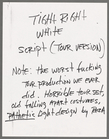 TIGHT RIGHT
WHITE
SCRIPT (TOUR VERSION)
NOTE: the worst fucking
tour production we ever
did. Horrible tour set,
old falling apart costumes,
PATHETIC light design by